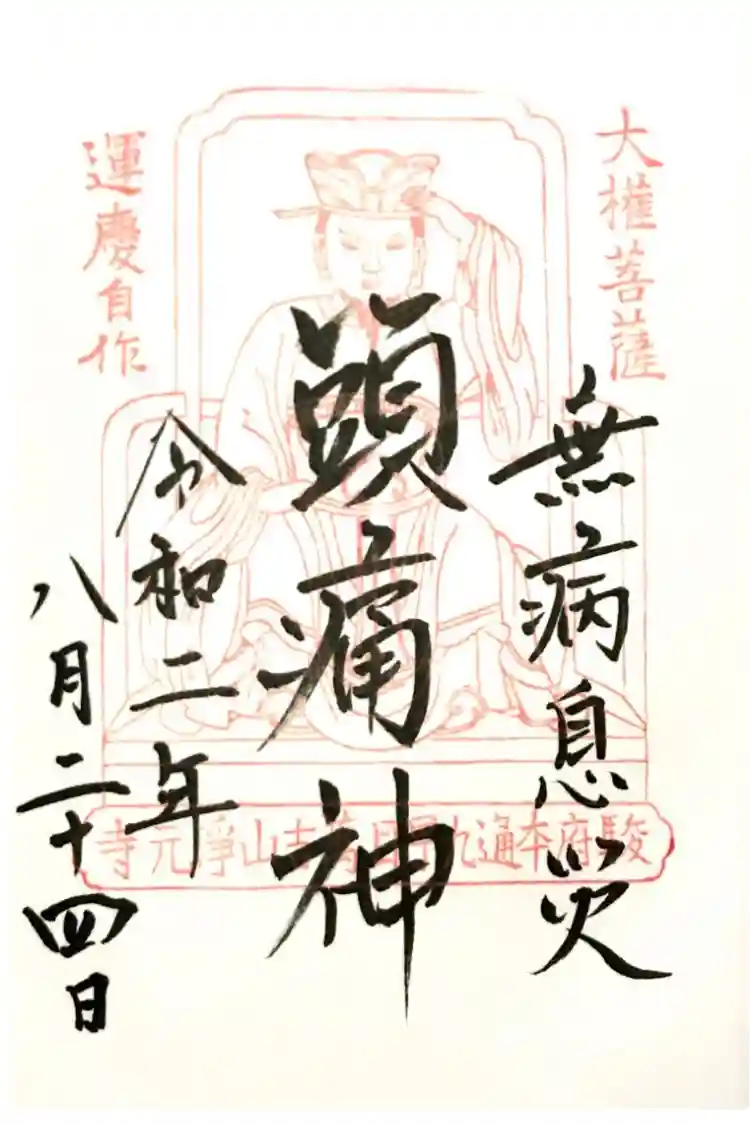 大權菩薩
無病息災
頭痛神
運慶自作
令和二年
八月二十四日
駿府本通九丁目萬吉山淨元寺